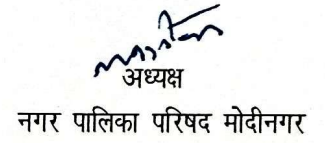 अध्यक्ष
नगर पालिका परिषद मोदीनगर